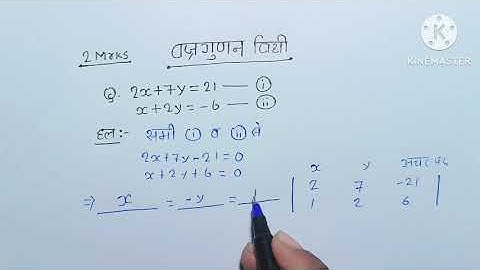 2 Mrks वज्रगुणन विधी
KINEMASTER
Q. 2x+7y=21 — (i)
x+2y=-6 — (ii)
हल:- समी (i) व (ii) से
2x+7y-21=0
x+2y+6=0
x y अचर पद
2 7 -21
1 2 6
⇒ x = -y = 1